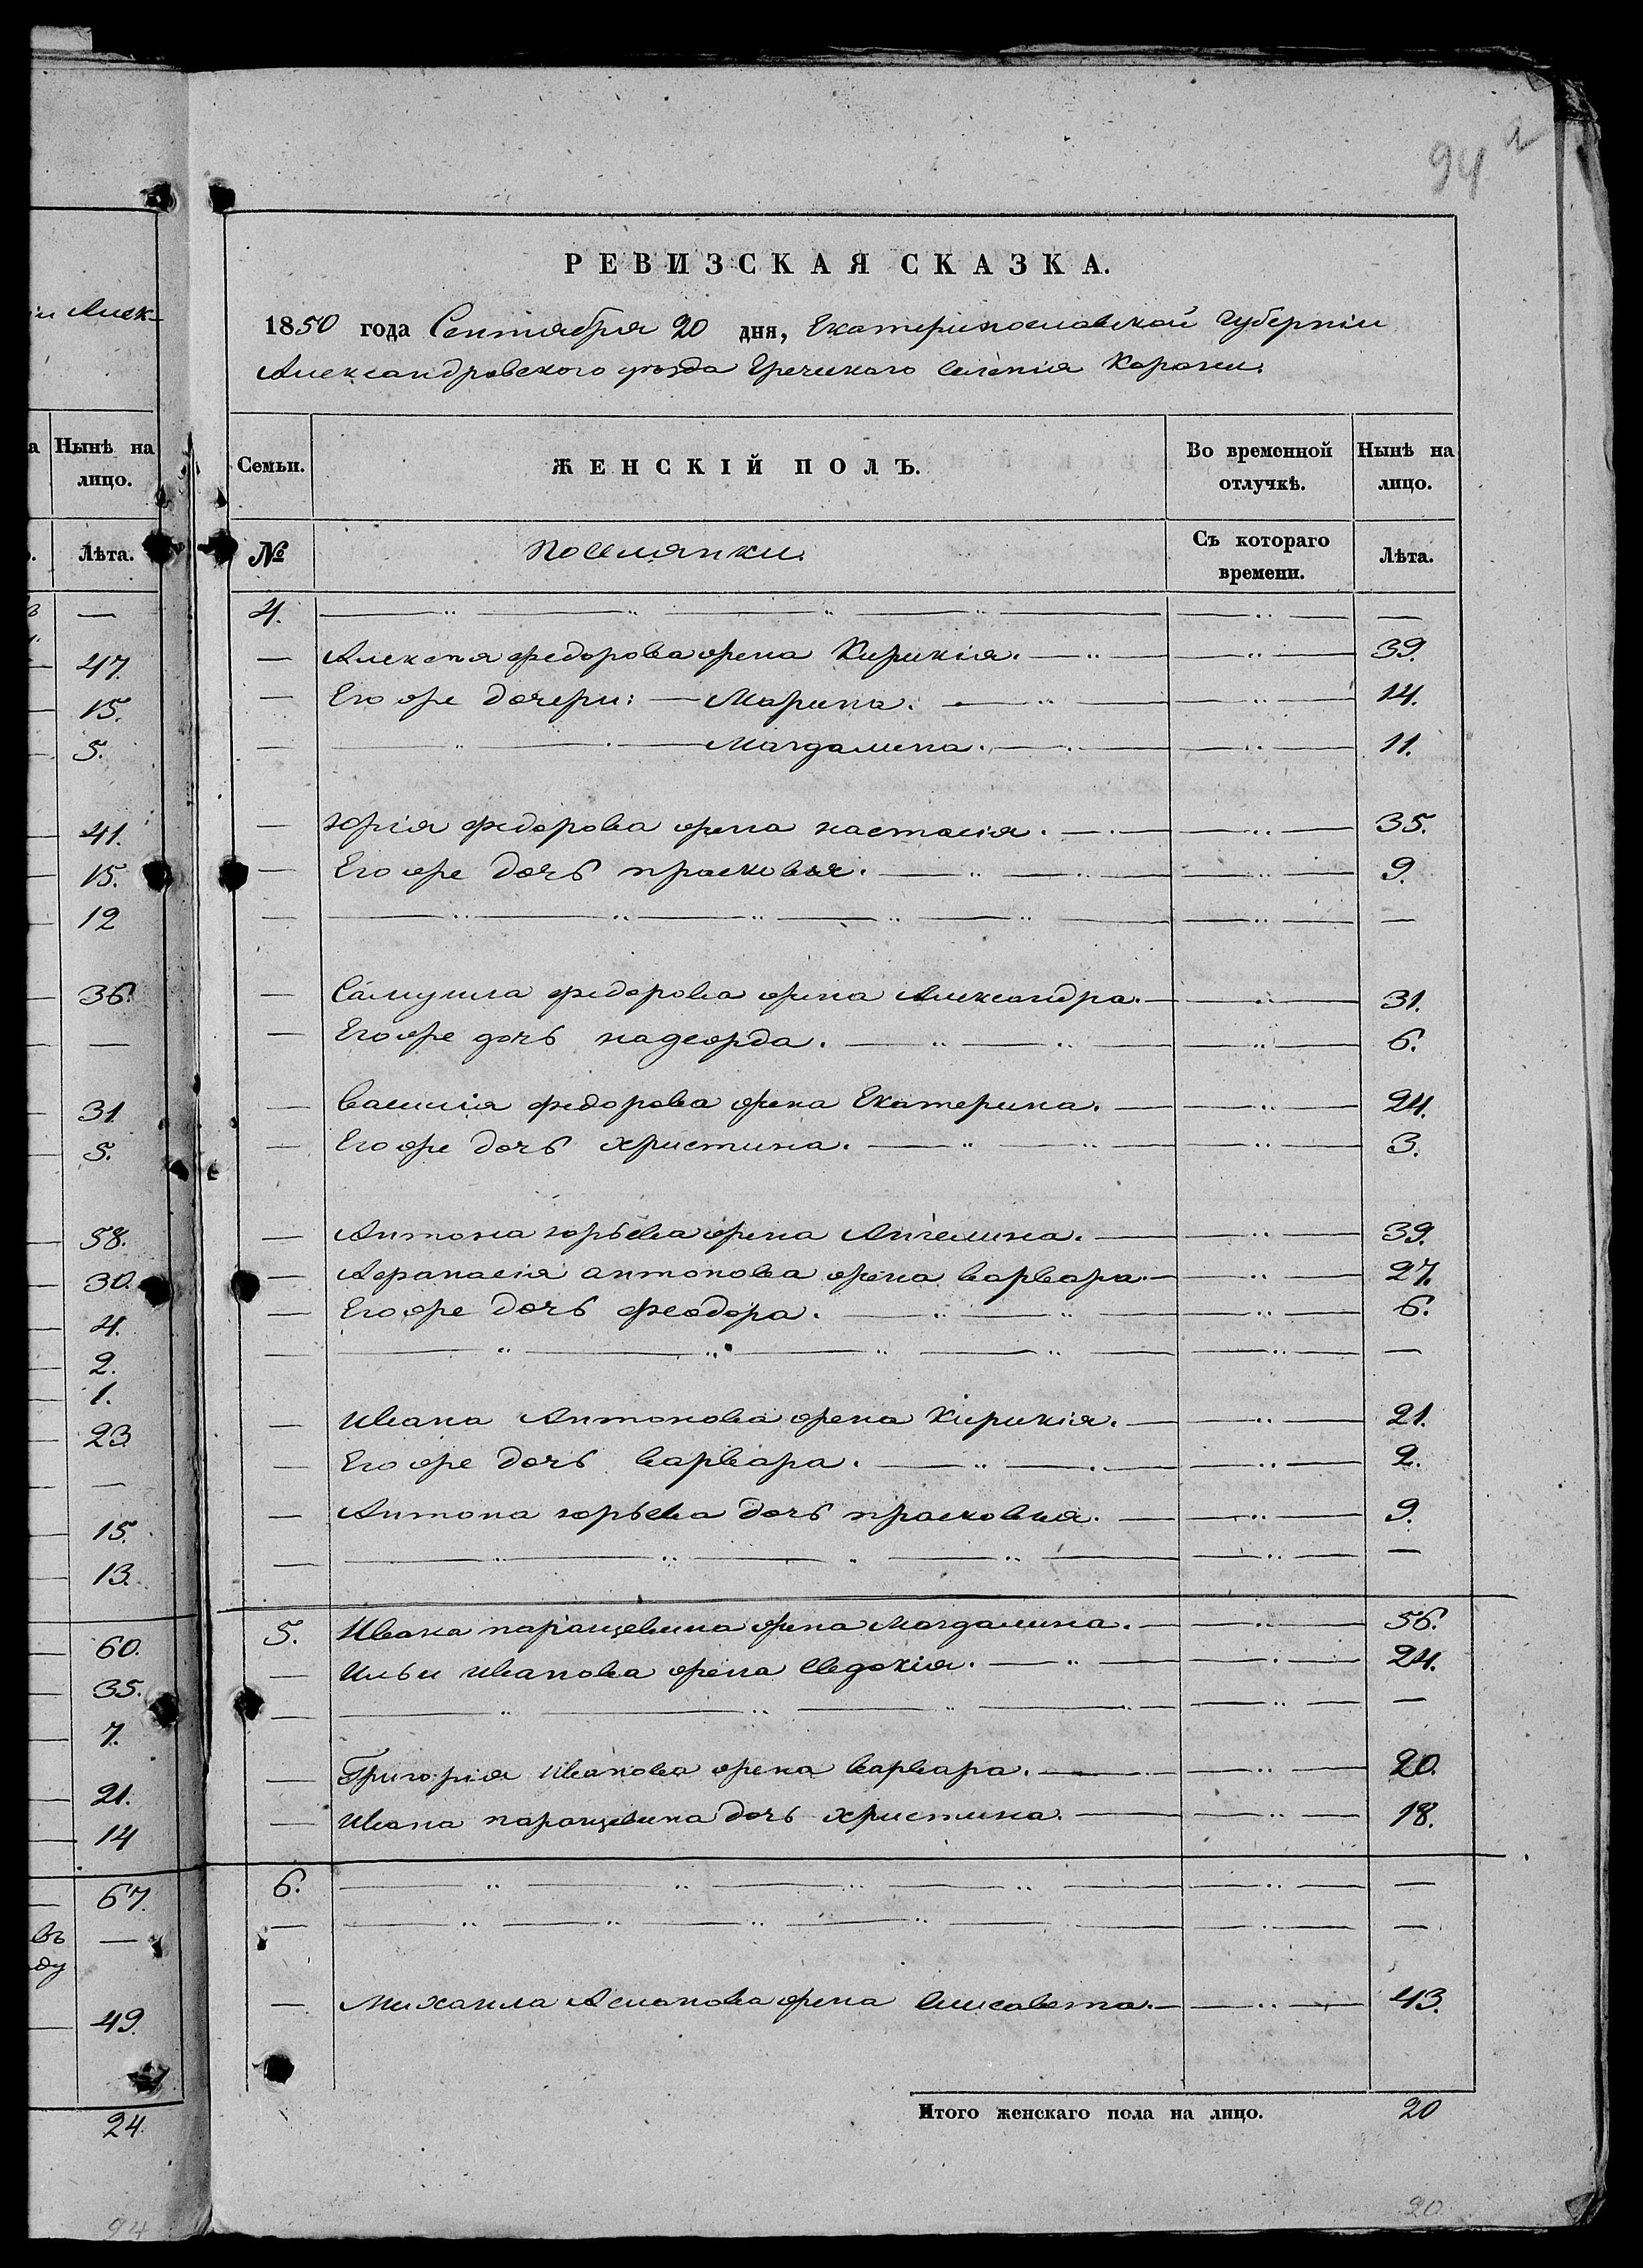 94 а
РЕВИЗСКАЯ СКАЗКА.
1850 года Сентября 20 дня, Екатеринославской Губерніи
Александровского уѣзда Греческаго Селенія Карани.
Семьи. ЖЕНСКІЙ ПОЛЪ. Во временной отлучкѣ. Нынѣ на лицо.
№ поселянки. Съ котораго времени. Лѣта.
4. — — —
— Алексея федорова жена Кирикія. — 39.
— Его же дочери: — Марина. — 14.
— Магдалина. — 11.
— юрія федорова жена настасія. — 35.
— Его же дочь прасковья. — 9.
— — — —
— Самуила федорова жена Александра. — 31.
— Его же дочь надежда. — 6.
— василія федорова жена Екатерина. — 24.
— Его же дочь христина. — 3.
— Антона юрьева жена Ангелина. — 39.
— Афанасія антонова жена варвара. — 27.
— Его же дочь феодора. — 6.
— — — —
— Ивана Антонова жена Кирикія. — 21.
— Его же дочь варвара. — 2.
— Антона юрьева дочь прасковия. — 9.
— — — —
5. Ивана жена магдалина. — 56.
— Ильи иванова жена Евдокія. — 24.
— — — —
— Григорія Иванова жена варвара. — 20.
— Ивана дочь христина. — 18.
6. — — —
— — — —
— Михаила Асланова жена Елисавета. — 43.
Итого женскаго пола на лицо. 20
20
іи Алек-
а Нынѣ на лицо.
Лѣта.
—
47.
15.
5.
41.
15.
12
36.
—
31
5.
58.
30.
4.
2.
1.
23
—
15.
13.
60.
35.
7.
21.
14
67.
въ —
ду
49.
24.
24